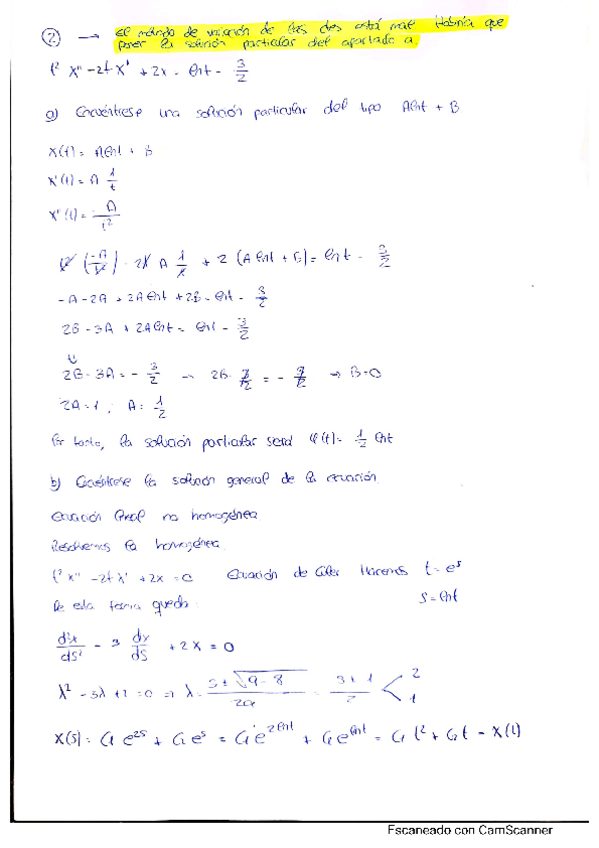 ② → El método de variación de las ctes está mal. Habría que
poner la solución particular del apartado a.
t² x'' - 2t x' + 2x = lnt - 3/2
a) Encuéntrese una solución particular del tipo A lnt + B
x(t) = A lnt + B
x'(t) = A 1/t
x''(t) = -A/t²
t² (-A/t²) - 2t A 1/t + 2 (A lnt + B) = lnt - 3/2
-A - 2A + 2A lnt + 2B = lnt - 3/2
2B - 3A + 2A lnt = lnt - 3/2
⇓
2B - 3A = - 3/2 → 2B - 3/2 = - 3/2 → B = 0
2A = 1 ; A = 1/2
Por tanto, la solución particular será φ(t) = 1/2 lnt
b) Encuéntrese la solución general de la ecuación.
Ecuación lineal no homogénea
Resolvemos la homogénea.
t² x'' - 2t x' + 2x = 0 Ecuación de Euler Hacemos t = e^s
s = lnt
De esta forma queda:
d²x/ds² - 3 dx/ds + 2x = 0
λ² - 3λ + 2 = 0 ⇒ λ = (3 ± √(9 - 8))/2a = (3 ± 1)/2 < 2 1
x(s) = C₁ e^2s + C₂ e^s = C₁ e^2lnt + C₂ e^lnt = C₁ t² + C₂ t = x(t)
Escaneado con CamScanner